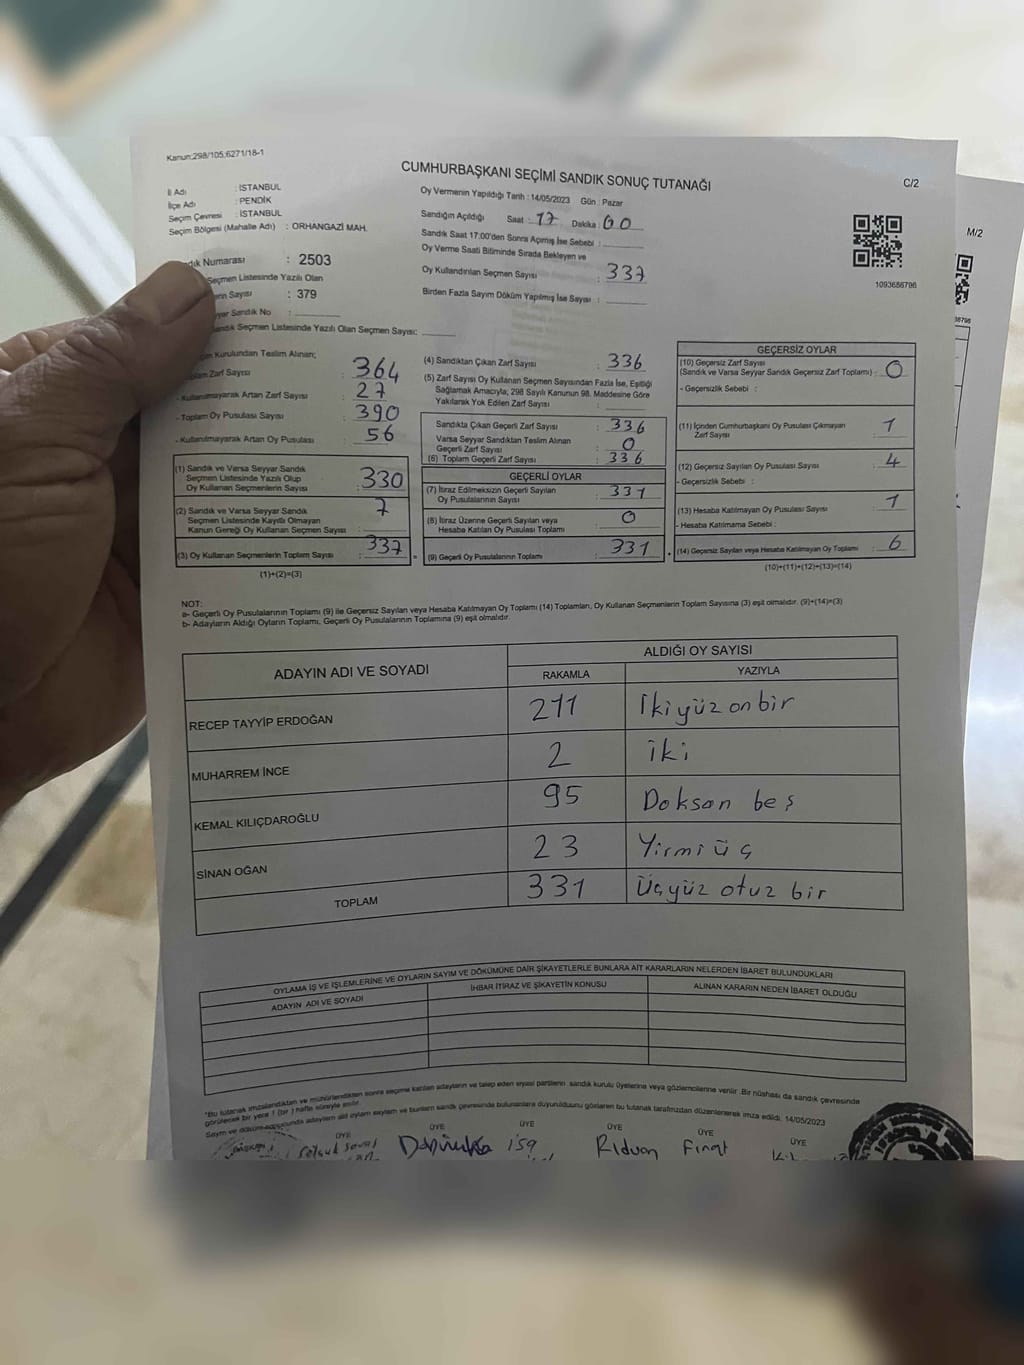 Kanun:298/105;6271/18-1
CUMHURBAŞKANI SEÇİMİ SANDIK SONUÇ TUTANAĞI
C/2
İl Adı : İSTANBUL
İlçe Adı : PENDİK
Seçim Çevresi : İSTANBUL
Seçim Bölgesi (Mahalle Adı) : ORHANGAZİ MAH.
Oy Vermenin Yapıldığı Tarih : 14/05/2023 Gün : Pazar
Sandığın Açıldığı Saat : 17 Dakika 00
Sandık Saat 17:00'den Sonra Açılmış İse Sebebi :
Oy Verme Saati Bitiminde Sırada Bekleyen ve
Oy Kullandırılan Seçmen Sayısı : 337
Birden Fazla Sayım Döküm Yapılmış İse Sayısı :
1093686796
M/2
Numarası : 2503
Seçmen Listesinde Yazılı Olan
Sayısı : 379
Sandık No :
Seçmen Listesinde Yazılı Olan Seçmen Sayısı:
Kurulundan Teslim Alınan;
Zarf Sayısı : 364
- Kullanılmayarak Artan Zarf Sayısı : 27
- Toplam Oy Pusulası Sayısı : 390
- Kullanılmayarak Artan Oy Pusulası : 56
(1) Sandık ve Varsa Seyyar Sandık
Seçmen Listesinde Yazılı Olup
Oy Kullanan Seçmenlerin Sayısı : 330
(2) Sandık ve Varsa Seyyar Sandık
Seçmen Listesinde Kayıtlı Olmayan
Kanun Gereği Oy Kullanan Seçmen Sayısı : 7
(3) Oy Kullanan Seçmenlerin Toplam Sayısı : 337
(1)+(2)=(3)
(4) Sandıktan Çıkan Zarf Sayısı : 336
(5) Zarf Sayısı Oy Kullanan Seçmen Sayısından Fazla İse, Eşitliği
Sağlamak Amacıyla, 298 Sayılı Kanunun 98. Maddesine Göre
Yakılarak Yok Edilen Zarf Sayısı :
Sandıkta Çıkan Geçerli Zarf Sayısı : 336
Varsa Seyyar Sandıktan Teslim Alınan
Geçerli Zarf Sayısı : 0
(6) Toplam Geçerli Zarf Sayısı : 336
GEÇERLİ OYLAR
(7) İtiraz Edilmeksizin Geçerli Sayılan
Oy Pusulalarının Sayısı : 331
(8) İtiraz Üzerine Geçerli Sayılan veya
Hesaba Katılan Oy Pusulası Toplamı : 0
(9) Geçerli Oy Pusulalarının Toplamı : 331
GEÇERSİZ OYLAR
(10) Geçersiz Zarf Sayısı
(Sandık ve Varsa Seyyar Sandık Geçersiz Zarf Toplamı) : 0
- Geçersizlik Sebebi :
(11) İçinden Cumhurbaşkanı Oy Pusulası Çıkmayan
Zarf Sayısı : 1
(12) Geçersiz Sayılan Oy Pusulası Sayısı : 4
- Geçersizlik Sebebi :
(13) Hesaba Katılmayan Oy Pusulası Sayısı : 1
- Hesaba Katılmama Sebebi :
(14) Geçersiz Sayılan veya Hesaba Katılmayan Oy Toplamı : 6
(10)+(11)+(12)+(13)=(14)
NOT:
a- Geçerli Oy Pusulalarının Toplamı (9) ile Geçersiz Sayılan veya Hesaba Katılmayan Oy Toplamı (14) Toplamları, Oy Kullanan Seçmenlerin Toplam Sayısına (3) eşit olmalıdır. (9)+(14)=(3)
b- Adayların Aldığı Oyların Toplamı, Geçerli Oy Pusulalarının Toplamına (9) eşit olmalıdır.
ADAYIN ADI VE SOYADI
ALDIĞI OY SAYISI
RAKAMLA YAZIYLA
RECEP TAYYİP ERDOĞAN 211 İkiyüz on bir
MUHARREM İNCE 2 iki
KEMAL KILIÇDAROĞLU 95 Doksan beş
SİNAN OĞAN 23 Yirmi üç
TOPLAM 331 Üçyüz otuz bir
OYLAMA İŞ VE İŞLEMLERİNE VE OYLARIN SAYIM VE DÖKÜMÜNE DAİR ŞİKAYETLERLE BUNLARA AİT KARARLARIN NELERDEN İBARET BULUNDUKLARI
ADAYIN ADI VE SOYADI İHBAR İTİRAZ VE ŞİKAYETİN KONUSU ALINAN KARARIN NEDEN İBARET OLDUĞU
*Bu tutanak imzalandıktan ve mühürlendikten sonra seçime katılan adayların ve talep eden siyasi partilerin sandık kurulu üyelerine veya gözlemcilerine verilir. Bir nüshası da sandık çevresinde
görülecek bir yere 1 (bir) hafta süreyle asılır.
14/05/2023
ÜYE ÜYE ÜYE ÜYE ÜYE ÜYE
isa Rıdvan Fırat